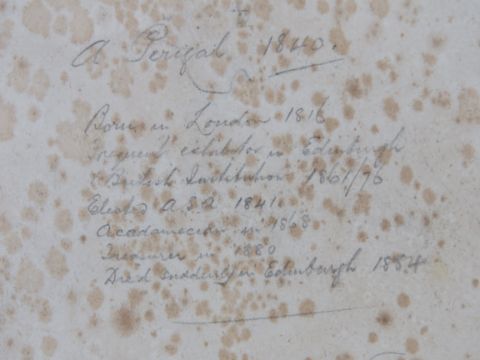 A Perigal 1840.
Born in London 1816
Frequent exhibitor in Edinburgh
British Institution 1861/76
Elected A.S.A 1841
Acadamecian in 1868
Treasurer in 1880
Died suddenly in Edinburgh 1884